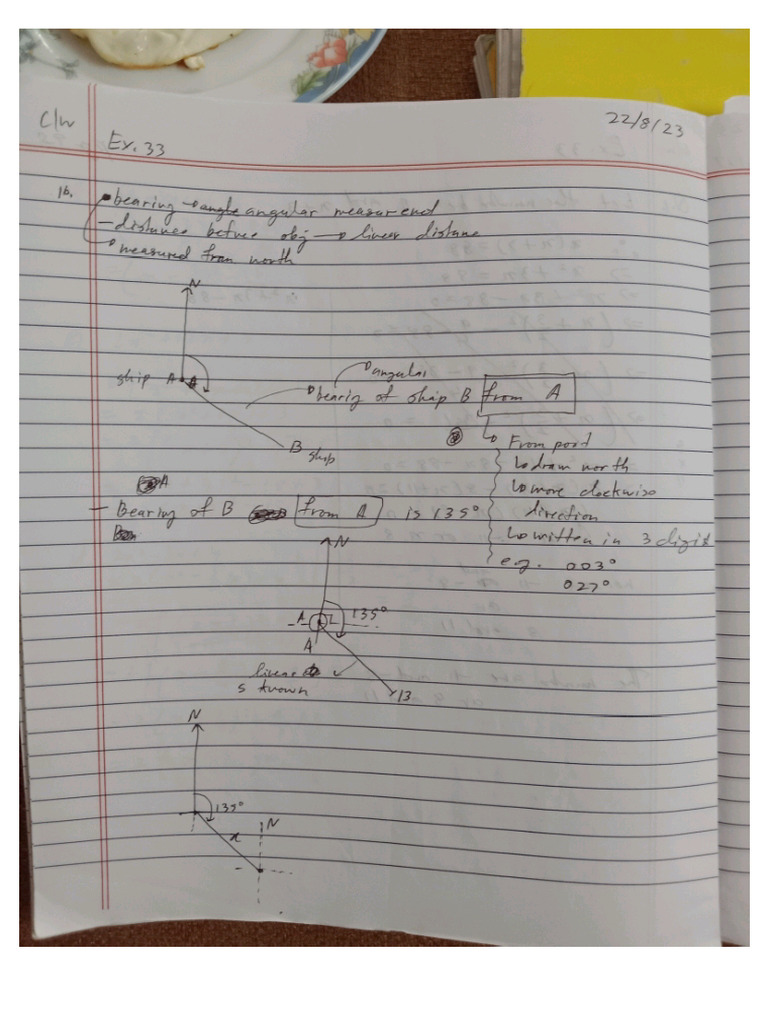 C/W
22/8/23
Ex. 33
1b.
bearing → angle angular measurend
- distances betwee obj → linear distane
measured from north
N
ship A
angular
bearig of ship B from A
B ship
From poin
draw north
move clockwiso
direction
written in 3 digit
e.g. 003°
027°
A
- Bearing of B from A is 135°
N
A
135°
A
B
N
135°
x
N